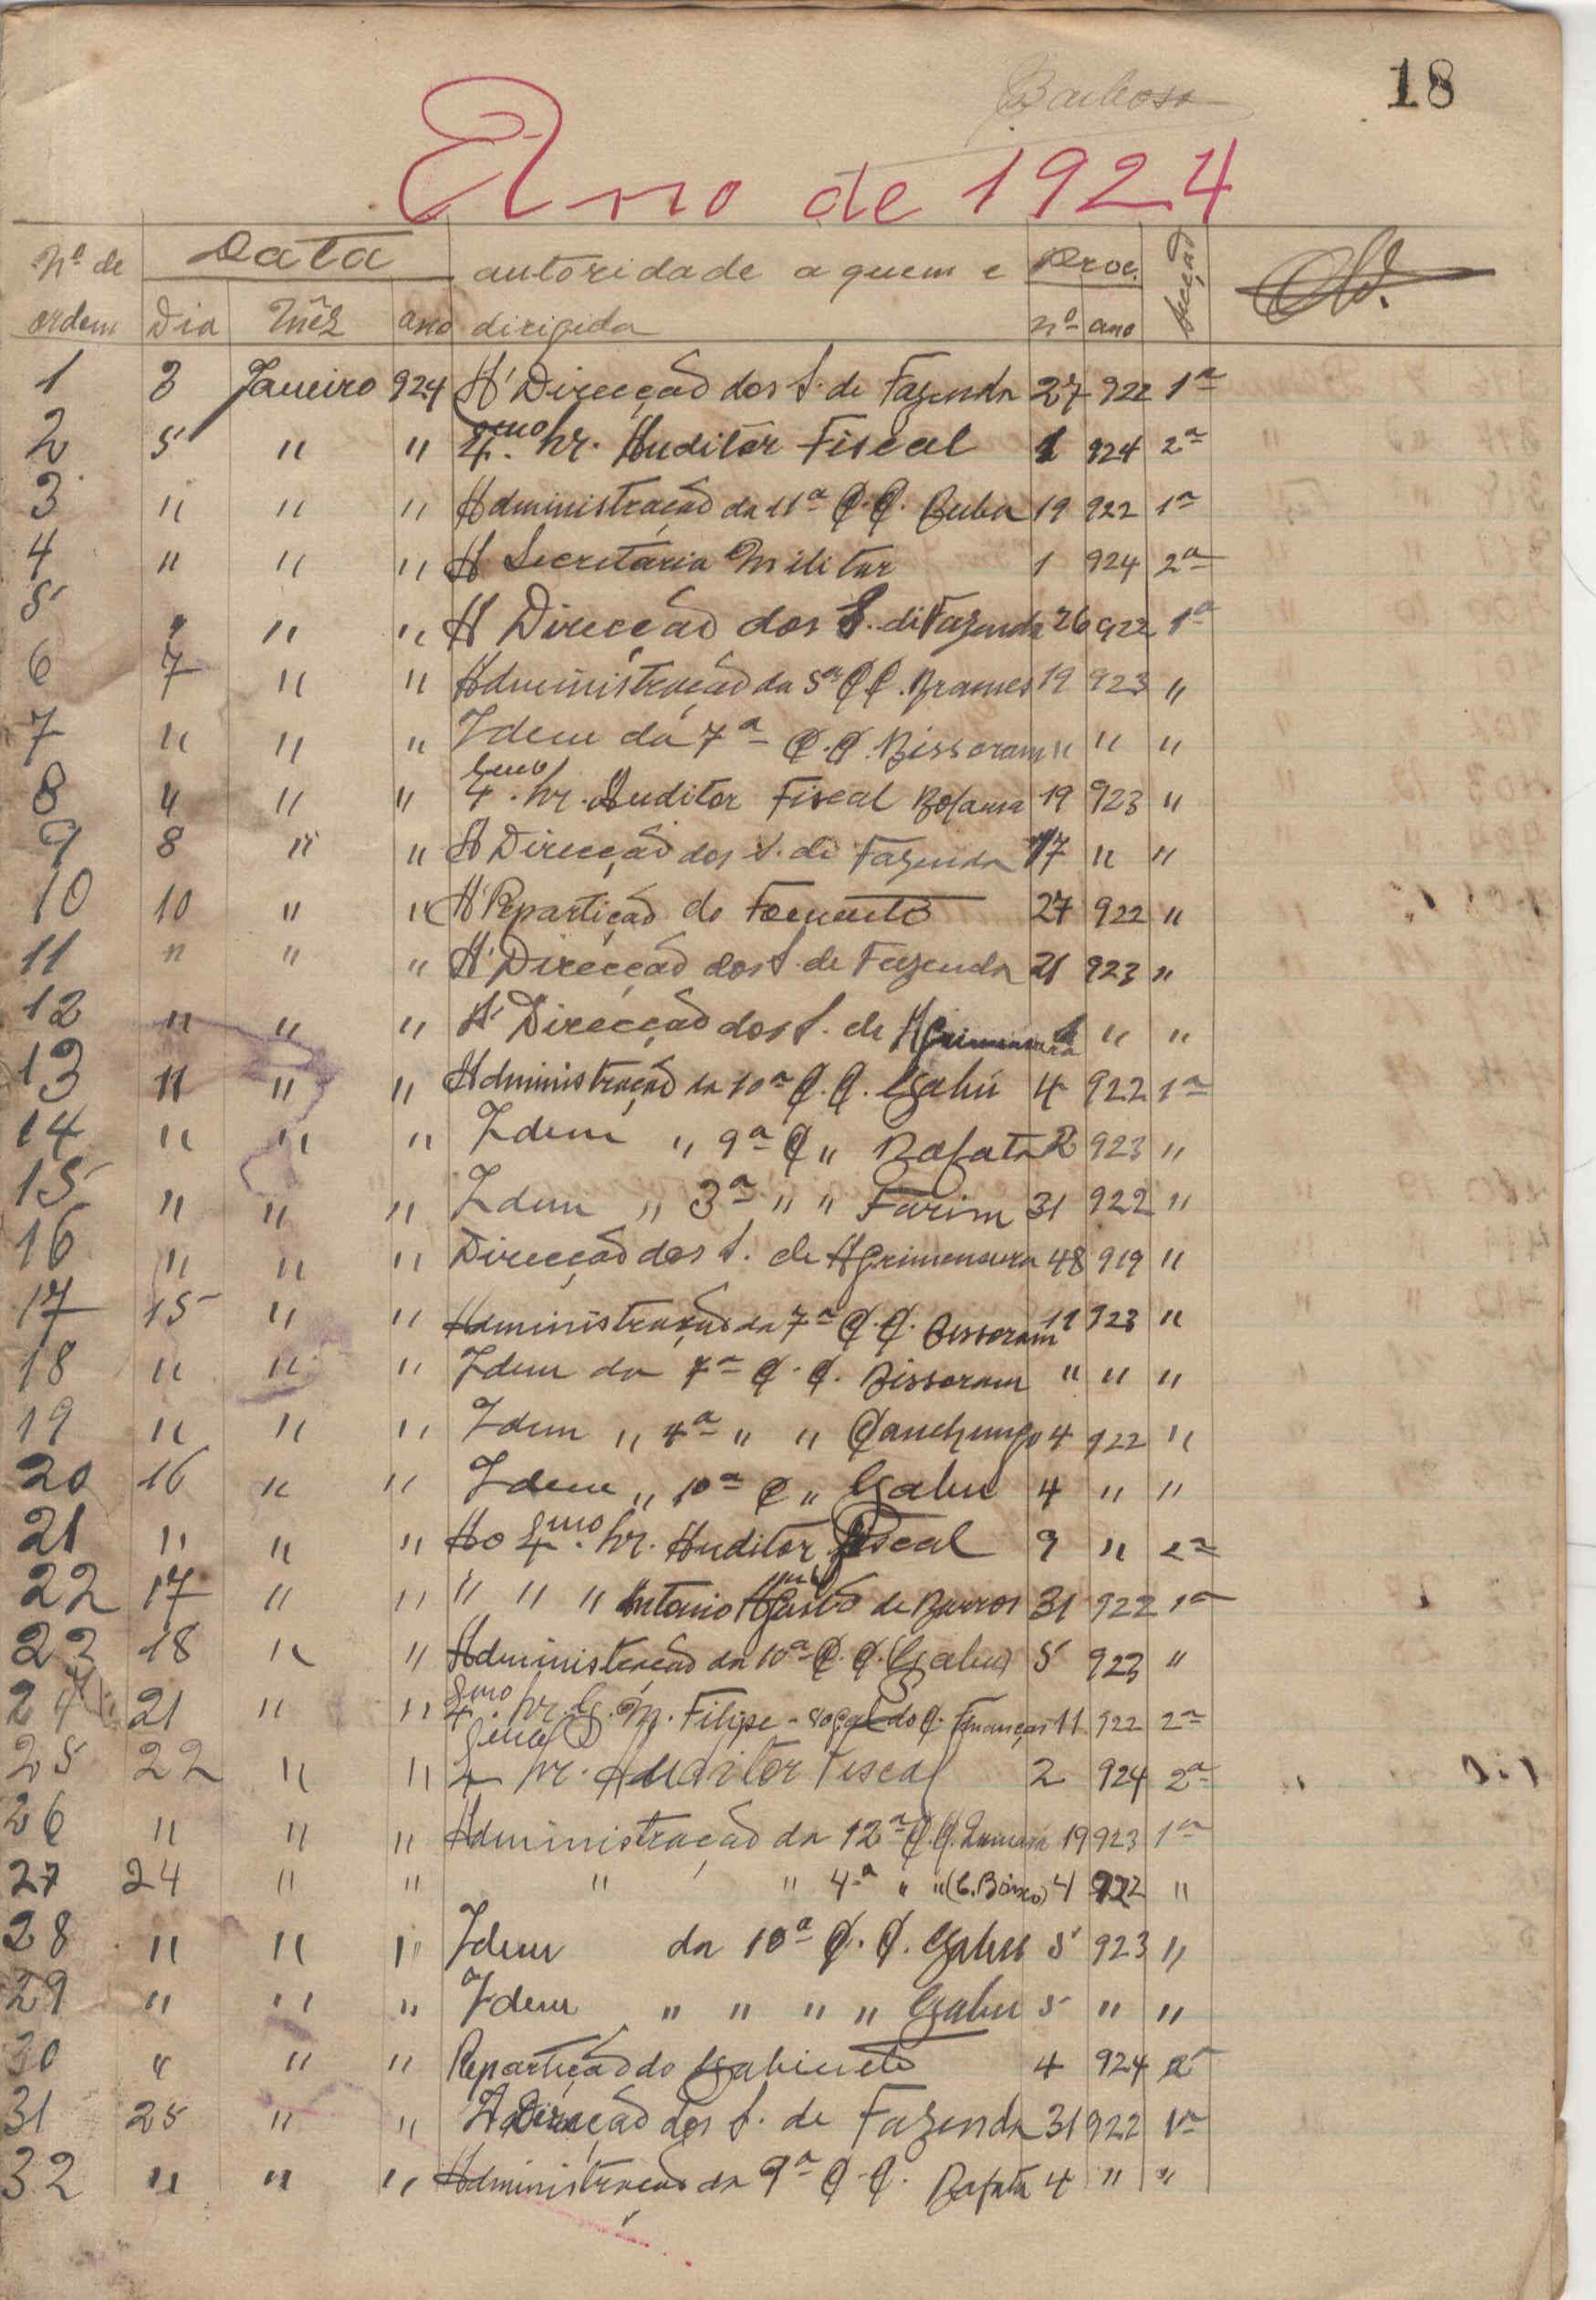 18
Barbosa
Ano de 1924
Nº de ordem Data Dia Mês ano autoridade a quem e dirigida Proc. nº ano Secção
1 3 Janeiro 924 A' Direcção dos S. de Fazenda 27 922 1ª
2 5 " " Exmo Sr. Auditor Fiscal 1 924 2ª
3 " " " Administração da 11ª C.C. Buba 19 922 1ª
4 " " " A Secretaria Militar 1 924 2ª
5 " " " A Direcção dos S. de Fazenda 26 922 1ª
6 7 " " Administração da 5ª C.C. Brames 19 923 "
7 " " " Idem da 7ª C.C. Bissoram " " "
8 4 " " Exmo Sr. Auditor Fiscal Bolama 19 923 "
9 8 " " A Direcção dos S. de Fazenda 17 " "
10 10 " " A' Repartição do Fomento 27 922 "
11 " " " A' Direcção dos S. de Fazenda 21 923 "
12 " " " A' Direcção dos S. de Agrimensura 1 " "
13 11 " " Administração da 10ª C.C. Gabú 4 922 1ª
14 " " " Idem " 9ª C " Bafata 2 923 "
15 " " " Idem " 3ª " " Farim 31 922 "
16 " " " Direcção dos S. de Agrimensura 48 919 "
17 15 " " Administração da 7ª C.C. Bissoram 11 923 "
18 " " " Idem da 7ª C.C. Bissoram " " "
19 " " " Idem " 4ª " " Canchungo 4 922 "
20 16 " " Idem " 10ª C " Gabu 4 " "
21 " " " Ao Exmo Sr. Auditor Fiscal 9 " 2ª
22 17 " " " " " Antonio de Barros 31 922 1ª
23 18 " " Administração da 10ª C.C. (Gabu) 5 923 "
24 21 " " Exmo Sr. G. M. Filipe - vogal do C. Finanças 11 922 2ª
25 22 " " Exmo Sr. Auditor Fiscal 2 924 2ª
26 " " " Administração da 12ª C.C. 19 923 1ª
27 24 " " " " 4ª " " (C. Baixo) 4 922 "
28 " " " Idem da 10ª C.C. Gabu 5 923 "
29 " " " Idem " " " " Gabu 5 " "
30 " " " Repartição do Gabinete 4 924 2ª
31 25 " " A Direcção dos S. de Fazenda 31 922 1ª
32 " " " Administração da 9ª C.C. Bafata 4 " "